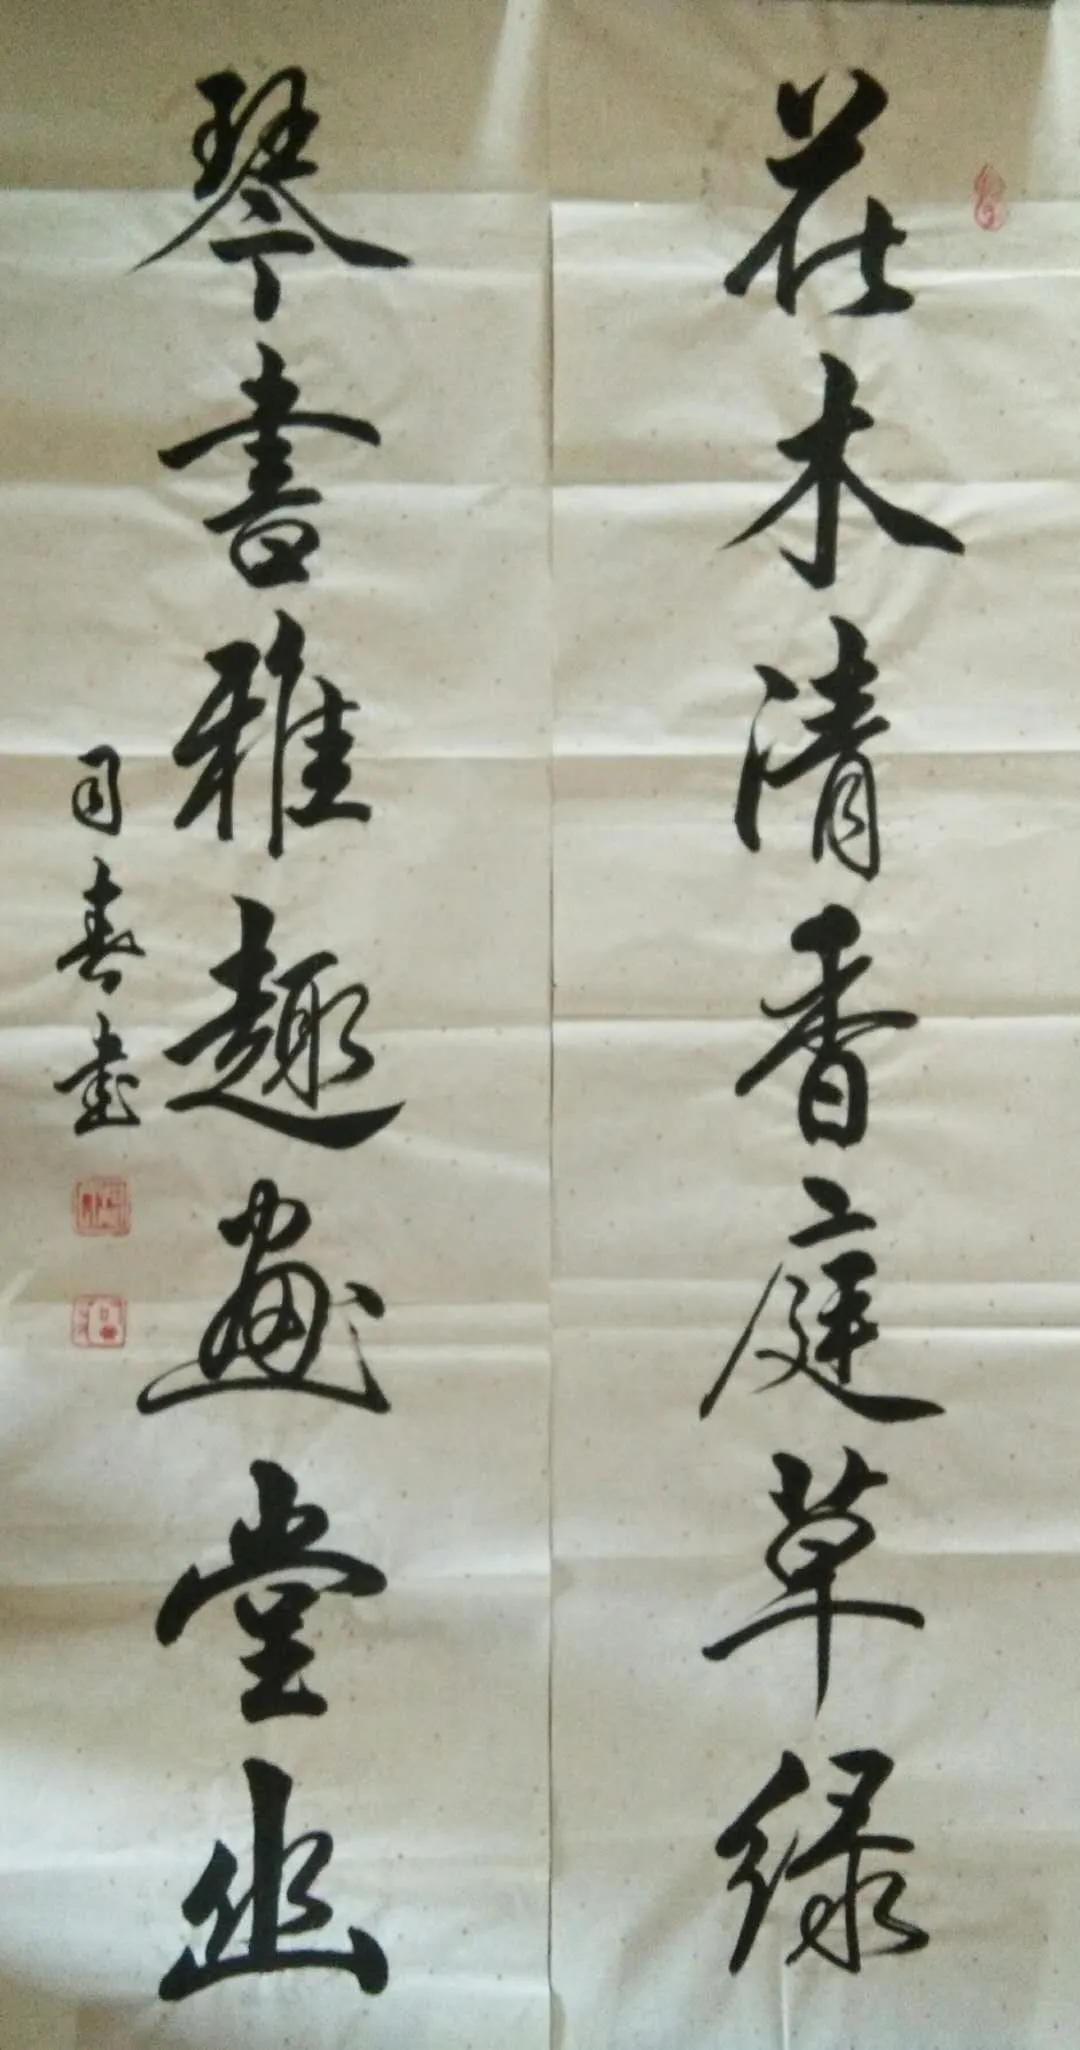 花木清香庭草绿
琴書雅趣畫堂幽
司春書